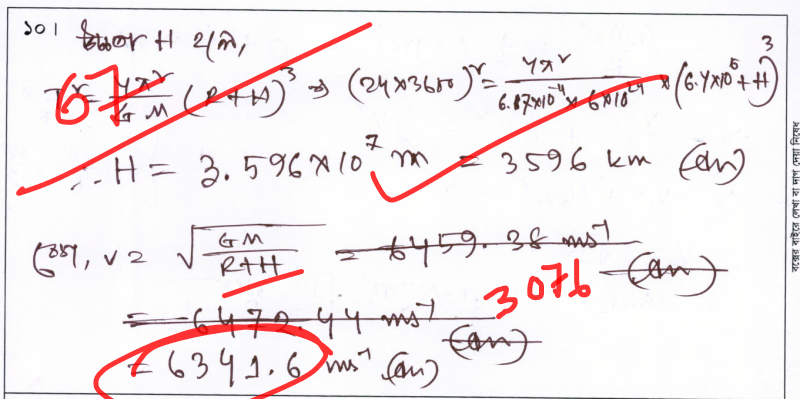 ১০। উচ্চতা H হলে,
T² = 4π²/GM (R+H)³ ⇒ (24×3600)² = 4π²/6.67×10⁻¹¹×6×10²⁴ × (6.4×10⁶+H)³
67
∴ H = 3.596×10⁷ m = 3596 km (Ans)
বেগ, v = √(GM/R+H) = 6459.38 ms⁻¹ (Ans)
3076
= 6472.44 ms⁻¹ (Ans)
= 6341.6 ms⁻¹ (Ans)
বক্সের বাইরে লেখা বা দাগ দেয়া নিষেধ